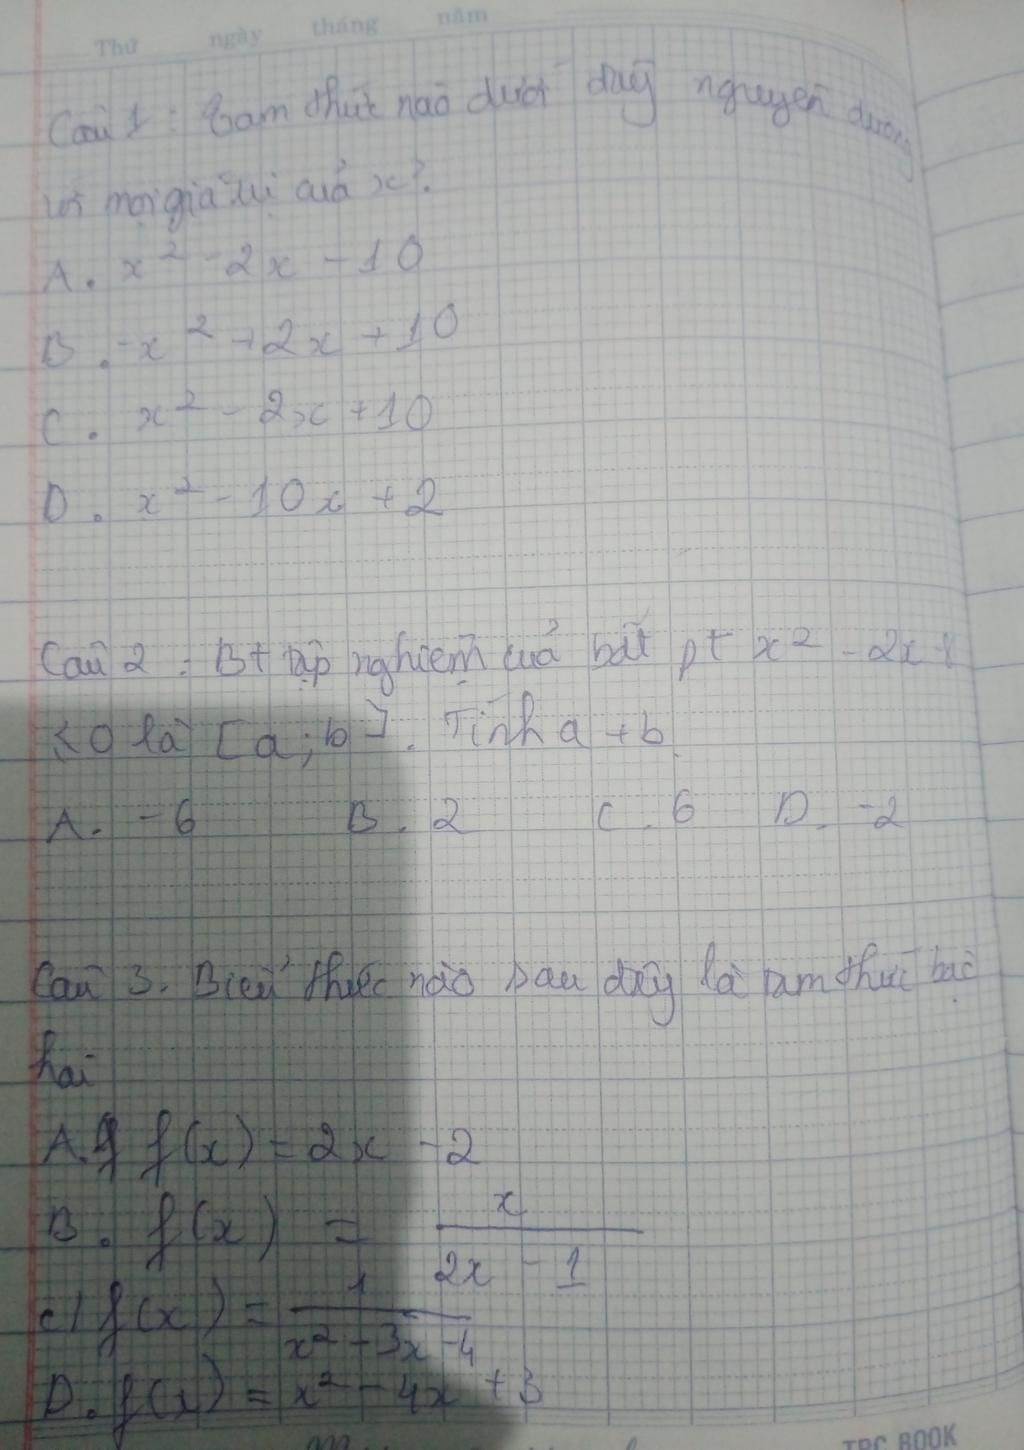 Thứ ngày tháng năm
Câu 1: Tam thức nào dưới đây nguyên dương
với mọi giá trị của x?
A. x² - 2x - 10
B. -x² + 2x + 10
C. x² - 2x + 10
D. x² - 10x + 2
Câu 2: Bt tập nghiệm của bất pt x² - 2x
≤0 là [a;b]. Tính a+b
A. -6 B. 2 C. 6 D. -2
Câu 3. Biểu thức nào sau đây là tam thức bậc
hai
A. f(x) = 2x - 2
B. f(x) = x / 2x - 1
c/ f(x) = 1 / x² - 3x - 4
D. f(x) = x² - 4x + 3
TPC BOOK